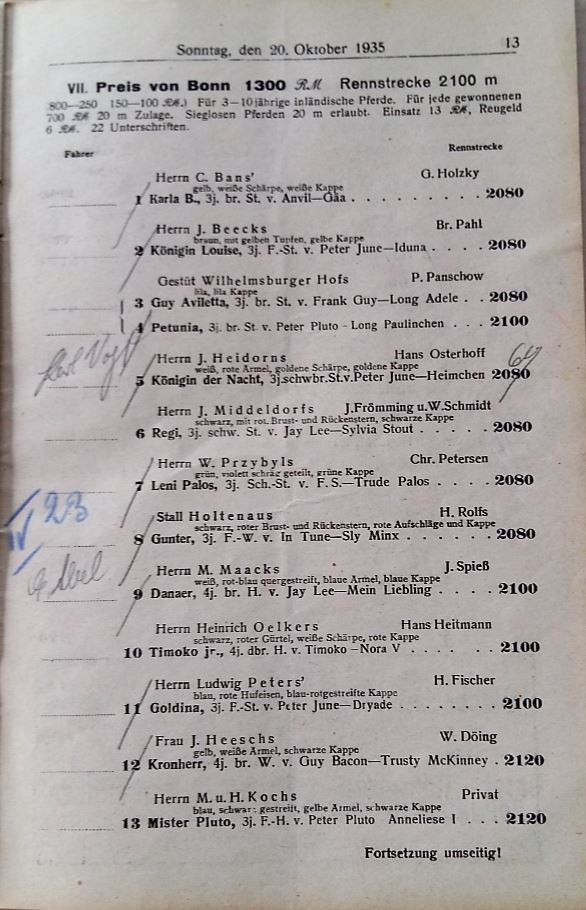 Sonntag, den 20. Oktober 1935 13
VII. Preis von Bonn 1300 RM Rennstrecke 2100 m
800—250 150—100 RM.) Für 3—10jährige inländische Pferde. Für jede gewonnenen
700 RM 20 m Zulage. Sieglosen Pferden 20 m erlaubt. Einsatz 13 RM, Reugeld
6 RM. 22 Unterschriften.
Fahrer Rennstrecke
Herrn C. Bans' G. Holzky
gelb, weiße Schärpe, weiße Kappe
1 Karla B., 3j. br. St. v. Anvil—Gäa . . . . . . . . 2080
Herrn J. Beecks Br. Pahl
braun, mit gelben Tupfen, gelbe Kappe
2 Königin Louise, 3j. F.-St. v. Peter June—Iduna . . . . 2080
Gestüt Wilhelmsburger Hofs P. Panschow
lila, lila Kappe
3 Guy Aviletta, 3j. br. St. v. Frank Guy—Long Adele . . 2080
4 Petunia, 3j. br. St v. Peter Pluto - Long Paulinchen . . . 2100
Herrn J. Heidorns Hans Osterhoff
weiß, rote Armel, goldene Schärpe, goldene Kappe
5 Königin der Nacht, 3j.schwbr.St.v.Peter June—Heimchen 2080
Herrn J. Middeldorfs J.Frömming u.W.Schmidt
schwarz, mit rot. Brust- und Rückenstern, schwarze Kappe
6 Regi, 3j. schw. St. v. Jay Lee—Sylvia Stout . . . . . 2080
Herrn W. Przybyls Chr. Petersen
grün, violett schräg geteilt, grüne Kappe
7 Leni Palos, 3j. Sch.-St. v. F. S.—Trude Palos . . . . 2080
23
Stall Holtenaus H. Rolfs
schwarz, roter Brust- und Rückenstern, rote Aufschläge und Kappe
8 Gunter, 3j. F.-W. v. In Tune—Sly Minx . . . . . . 2080
Herrn M. Maacks J. Spieß
weiß, rot-blau quergestreift, blaue Armel, blaue Kappe
9 Danaer, 4j. br. H. v. Jay Lee—Mein Liebling . . . . 2100
Herrn Heinrich Oelkers Hans Heitmann
schwarz, roter Gürtel, weiße Schärpe, rote Kappe
10 Timoko jr., 4j. dbr. H. v. Timoko - Nora V . . . . . . 2100
Herrn Ludwig Peters' H. Fischer
blau, rote Hufeisen, blau-rotgestreifte Kappe
11 Goldina, 3j. F.-St. v. Peter June—Dryade . . . . . . . 2100
Frau J. Heeschs W. Döing
gelb, weiße Armel, schwarze Kappe
12 Kronherr, 4j. br. W. v. Guy Bacon—Trusty McKinney . 2120
Herrn M. u. H. Kochs Privat
blau, schwarz gestreift, gelbe Armel, schwarze Kappe
13 Mister Pluto, 3j. F.-H. v. Peter Pluto Anneliese I . . . 2120
Fortsetzung umseitig!